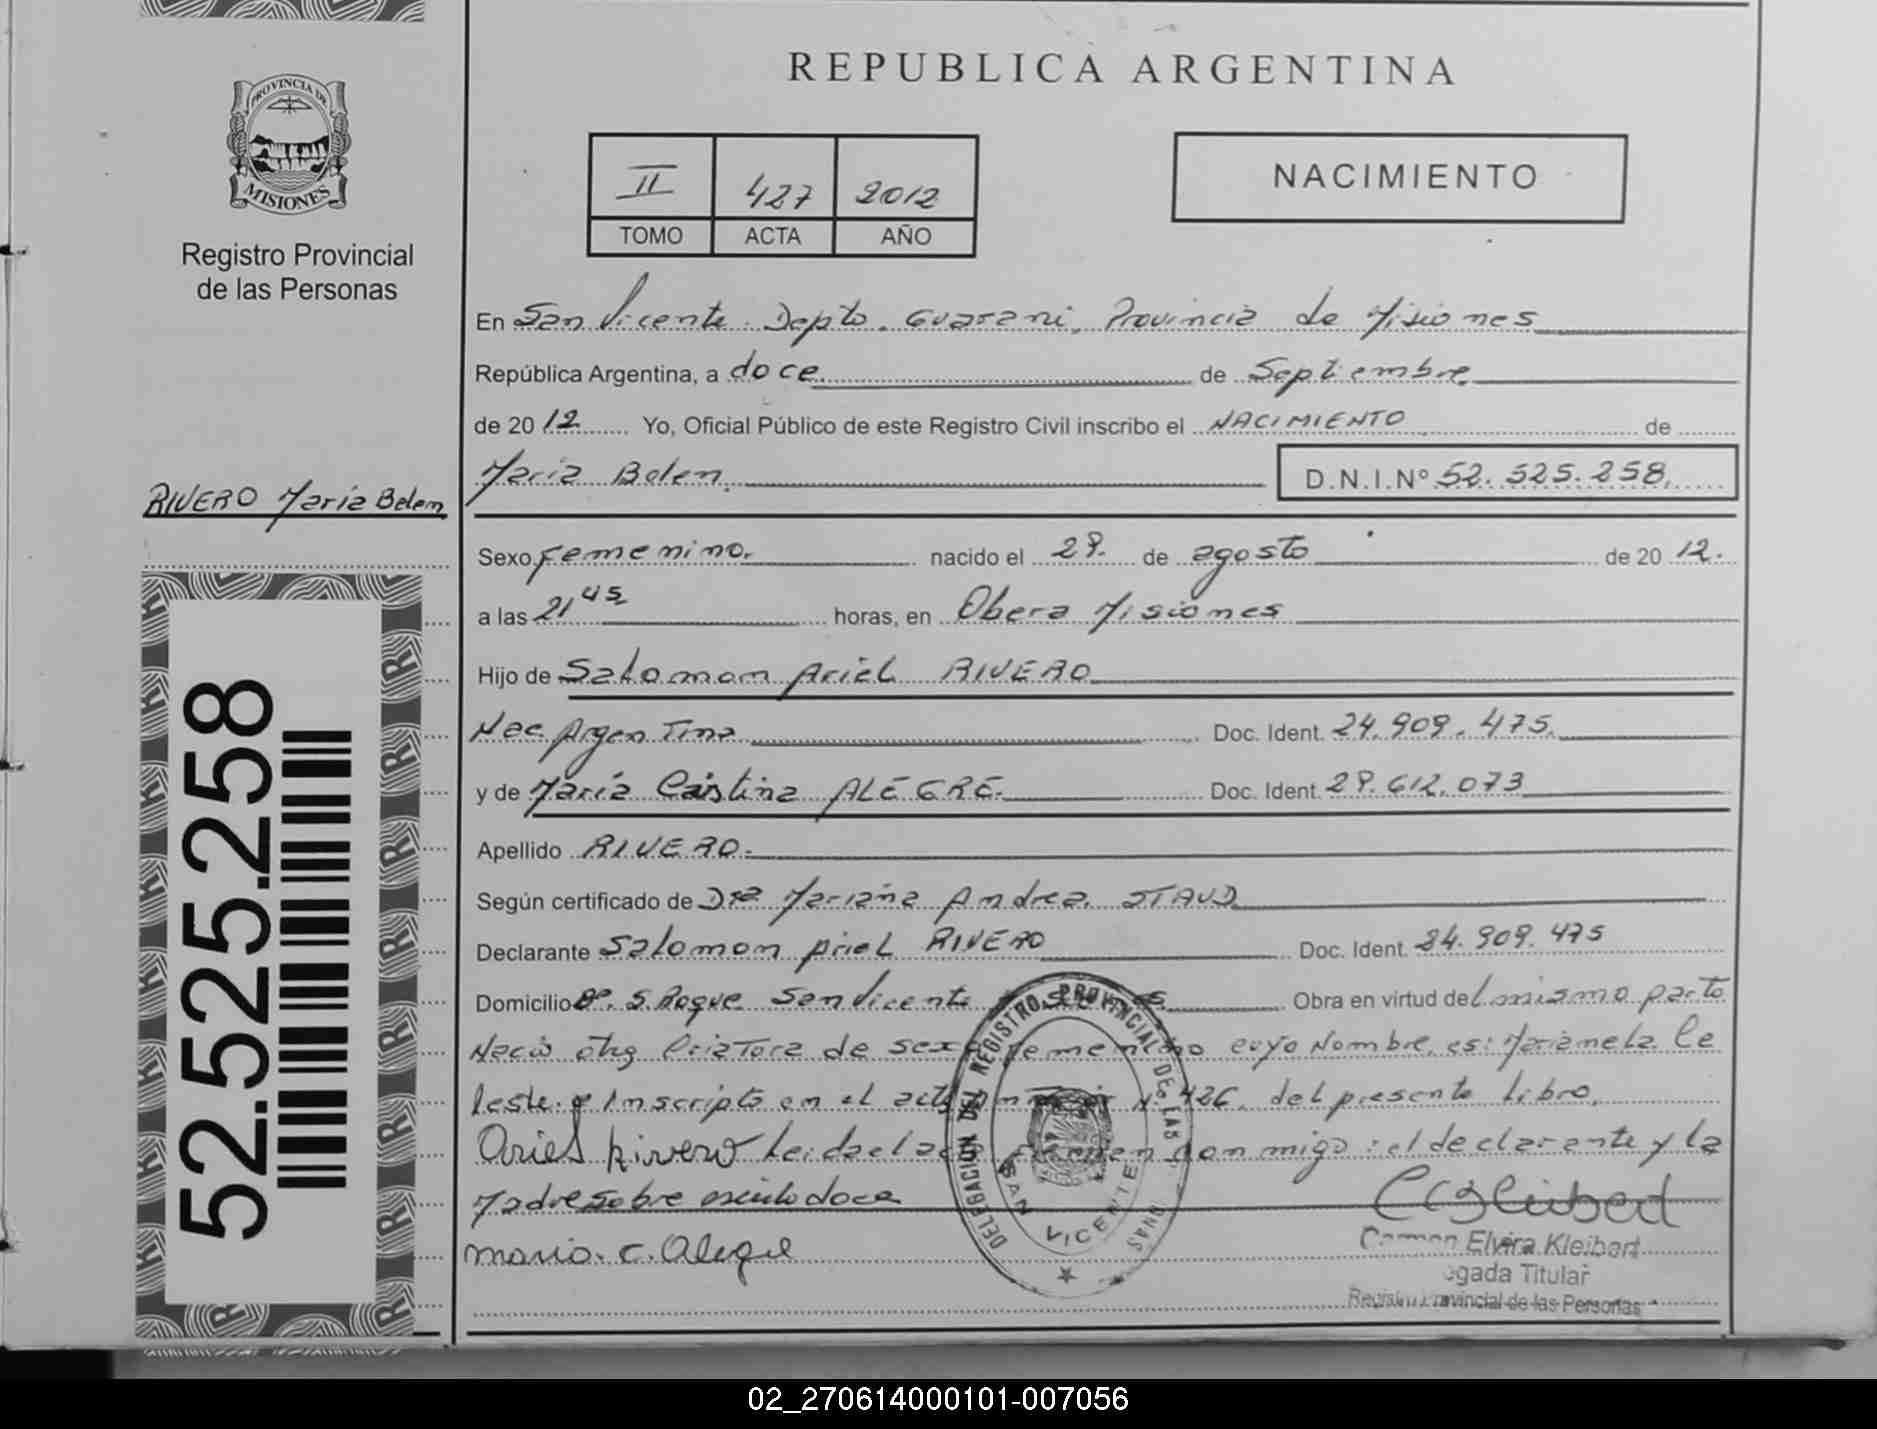 PROVINCIA DE
MISIONES
Registro Provincial
de las Personas
RIVERO Maria Belen
52.525.258
REPUBLICA ARGENTINA
II 427 2012
TOMO ACTA AÑO
NACIMIENTO
En San Vicente. Depto. Guarani, Provincia de Misiones
República Argentina, a doce. de Septiembre
de 2012 Yo, Oficial Público de este Registro Civil inscribo el NACIMIENTO de
Maria Belen. D.N.I.Nº 52.525.258.
Sexo Femenino. nacido el 29. de agosto de 2012.
a las 21 45 horas, en Obera Misiones
Hijo de Salomon Ariel RIVERO
Nac Argentina Doc. Ident. 24.909.475.
y de Maria Cristina ALEGRE. Doc. Ident. 29.612.073
Apellido RIVERO.
Según certificado de Dra Mariana Andrea STAUD
Declarante Salomon Ariel RIVERO Doc. Ident. 24.909.475
Domicilio Bº. S. Roque San Vicente Obra en virtud del mismo parto
Nacio otra Criatora de sexo femenino cuyo Nombre es: Marianela Ce
leste. e Inscripto en el acta Nº 426. del presente Libro.
Ariel Rivero Leida el acta firman conmigo: el declarante y la
Madre sobre escrito doce
maria. c. Alegre
DELEGACION DEL REGISTRO PROVINCIAL DE LAS PERSONAS
SAN VICENTE
Carmen Elvira Kleibert
Delegada Titular
Registro Provincial de las Personas
02_270614000101-007056